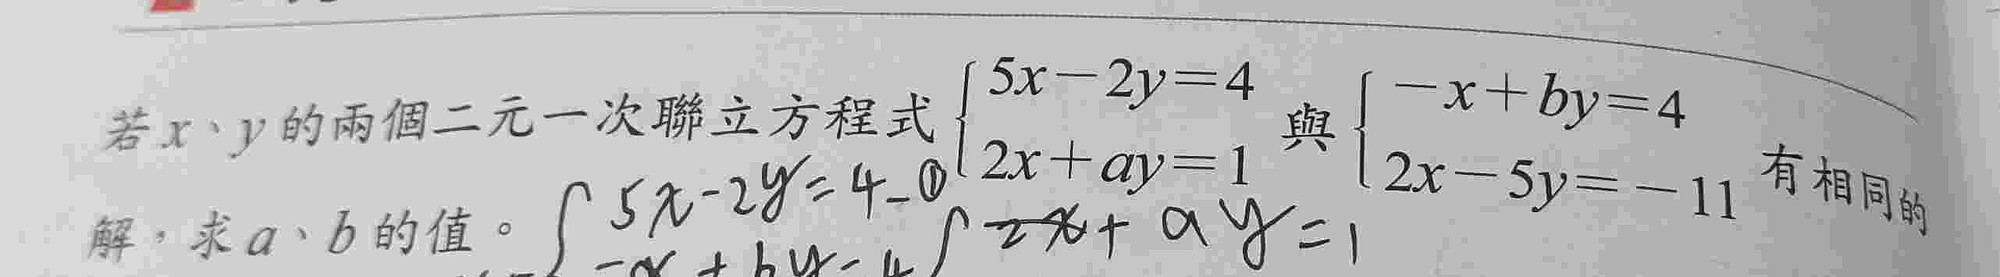 若x、y的兩個二元一次聯立方程式{5x－2y＝4 2x＋ay＝1 與{－x＋by＝4 2x－5y＝－11 有相同的
解，求a、b的值。
{5x-2y=4-① {2x+ay=1
-x+by=4